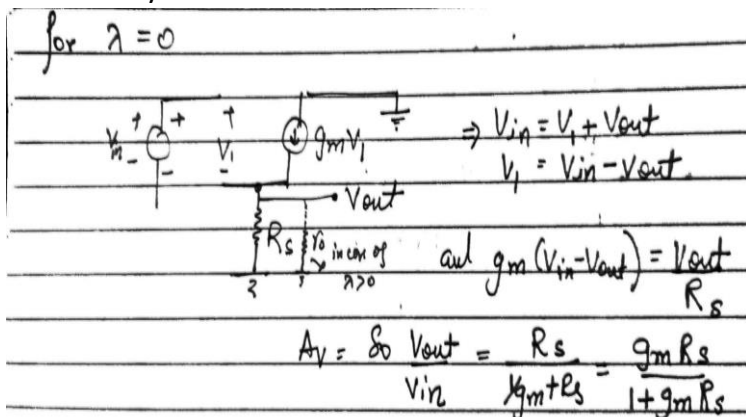 for λ = 0
Vin + - + - V₁ + - gmV₁
⇒ Vin = V₁ + Vout
V₁ = Vin - Vout
Vout
Rs ro in con of λ>0
and gm (Vin - Vout) = Vout / Rs
Av = So Vout / Vin = Rs / (1/gm + Rs) = gm Rs / (1 + gm Rs)